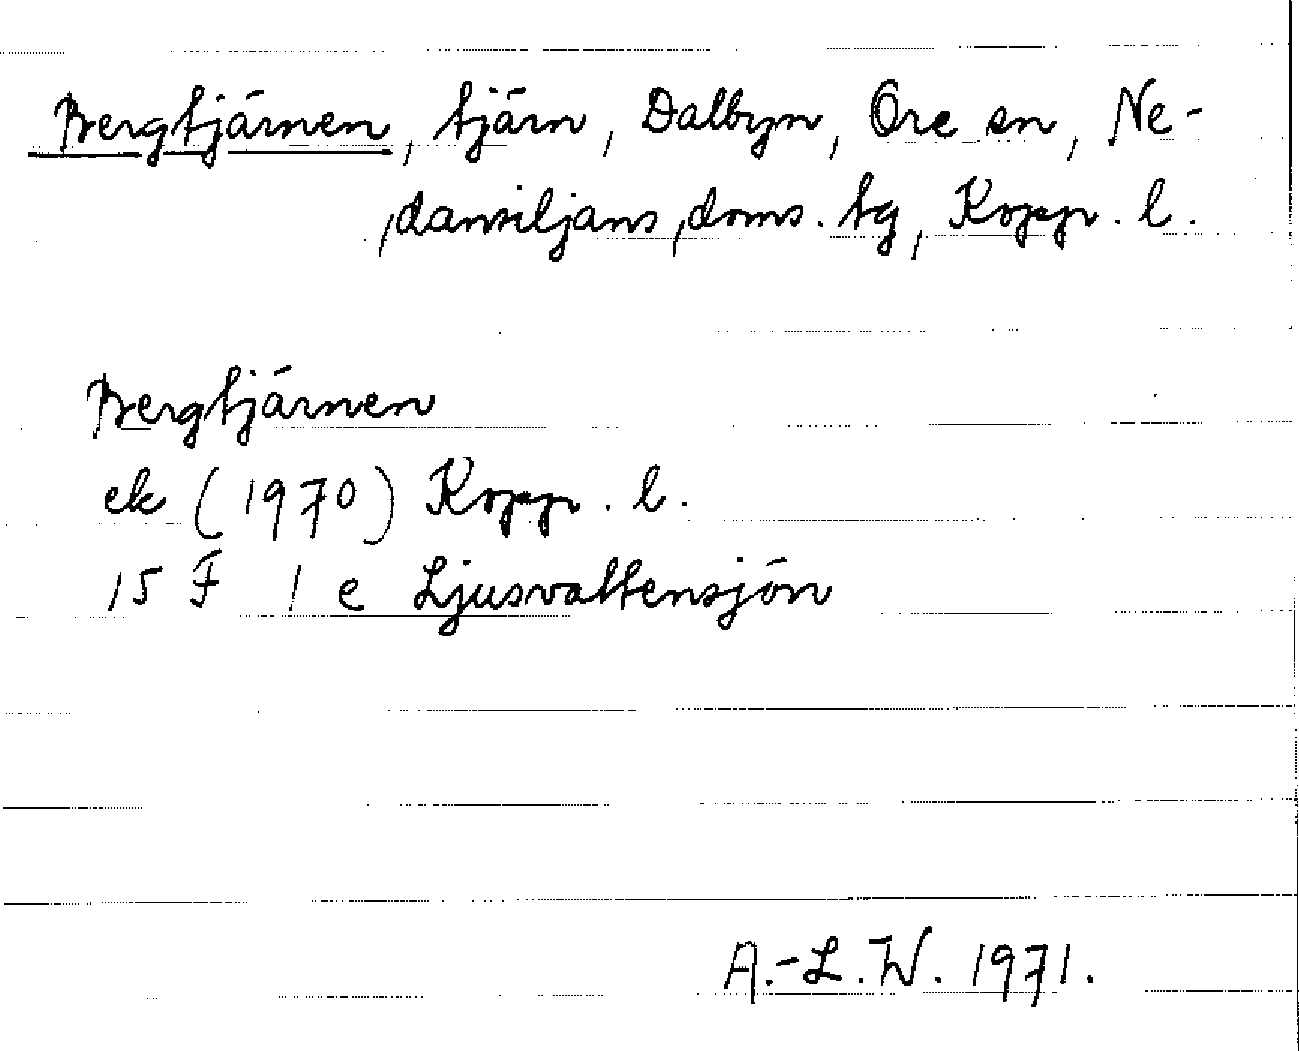 Bergtjärnen, tjärn, Dalbyn, Ore sn, Ne-
dansiljans doms. tg, Kopp. l.
Bergtjärnen
ek (1970) Kopp. l.
15 F 1 e Ljusvattensjön
A.-L.W. 1971.